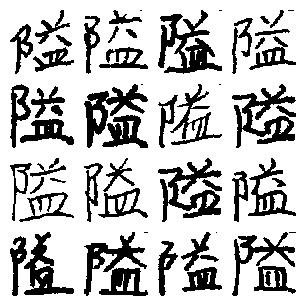 隘隘隘隘
隘隘隘隘
隘隘隘隘
隘隘隘隘